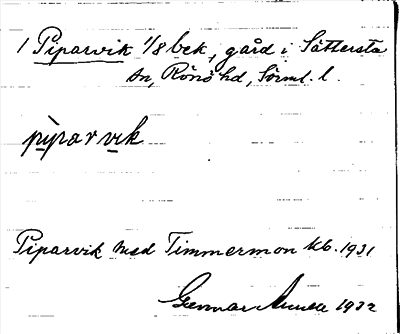 1 Piparvik 1/8 bek, gård i Sättersta
sn, Rönö hd, Sörml. l.
pìparvik
Piparvik med Timmermon kb. 1931
Gunnar 1932